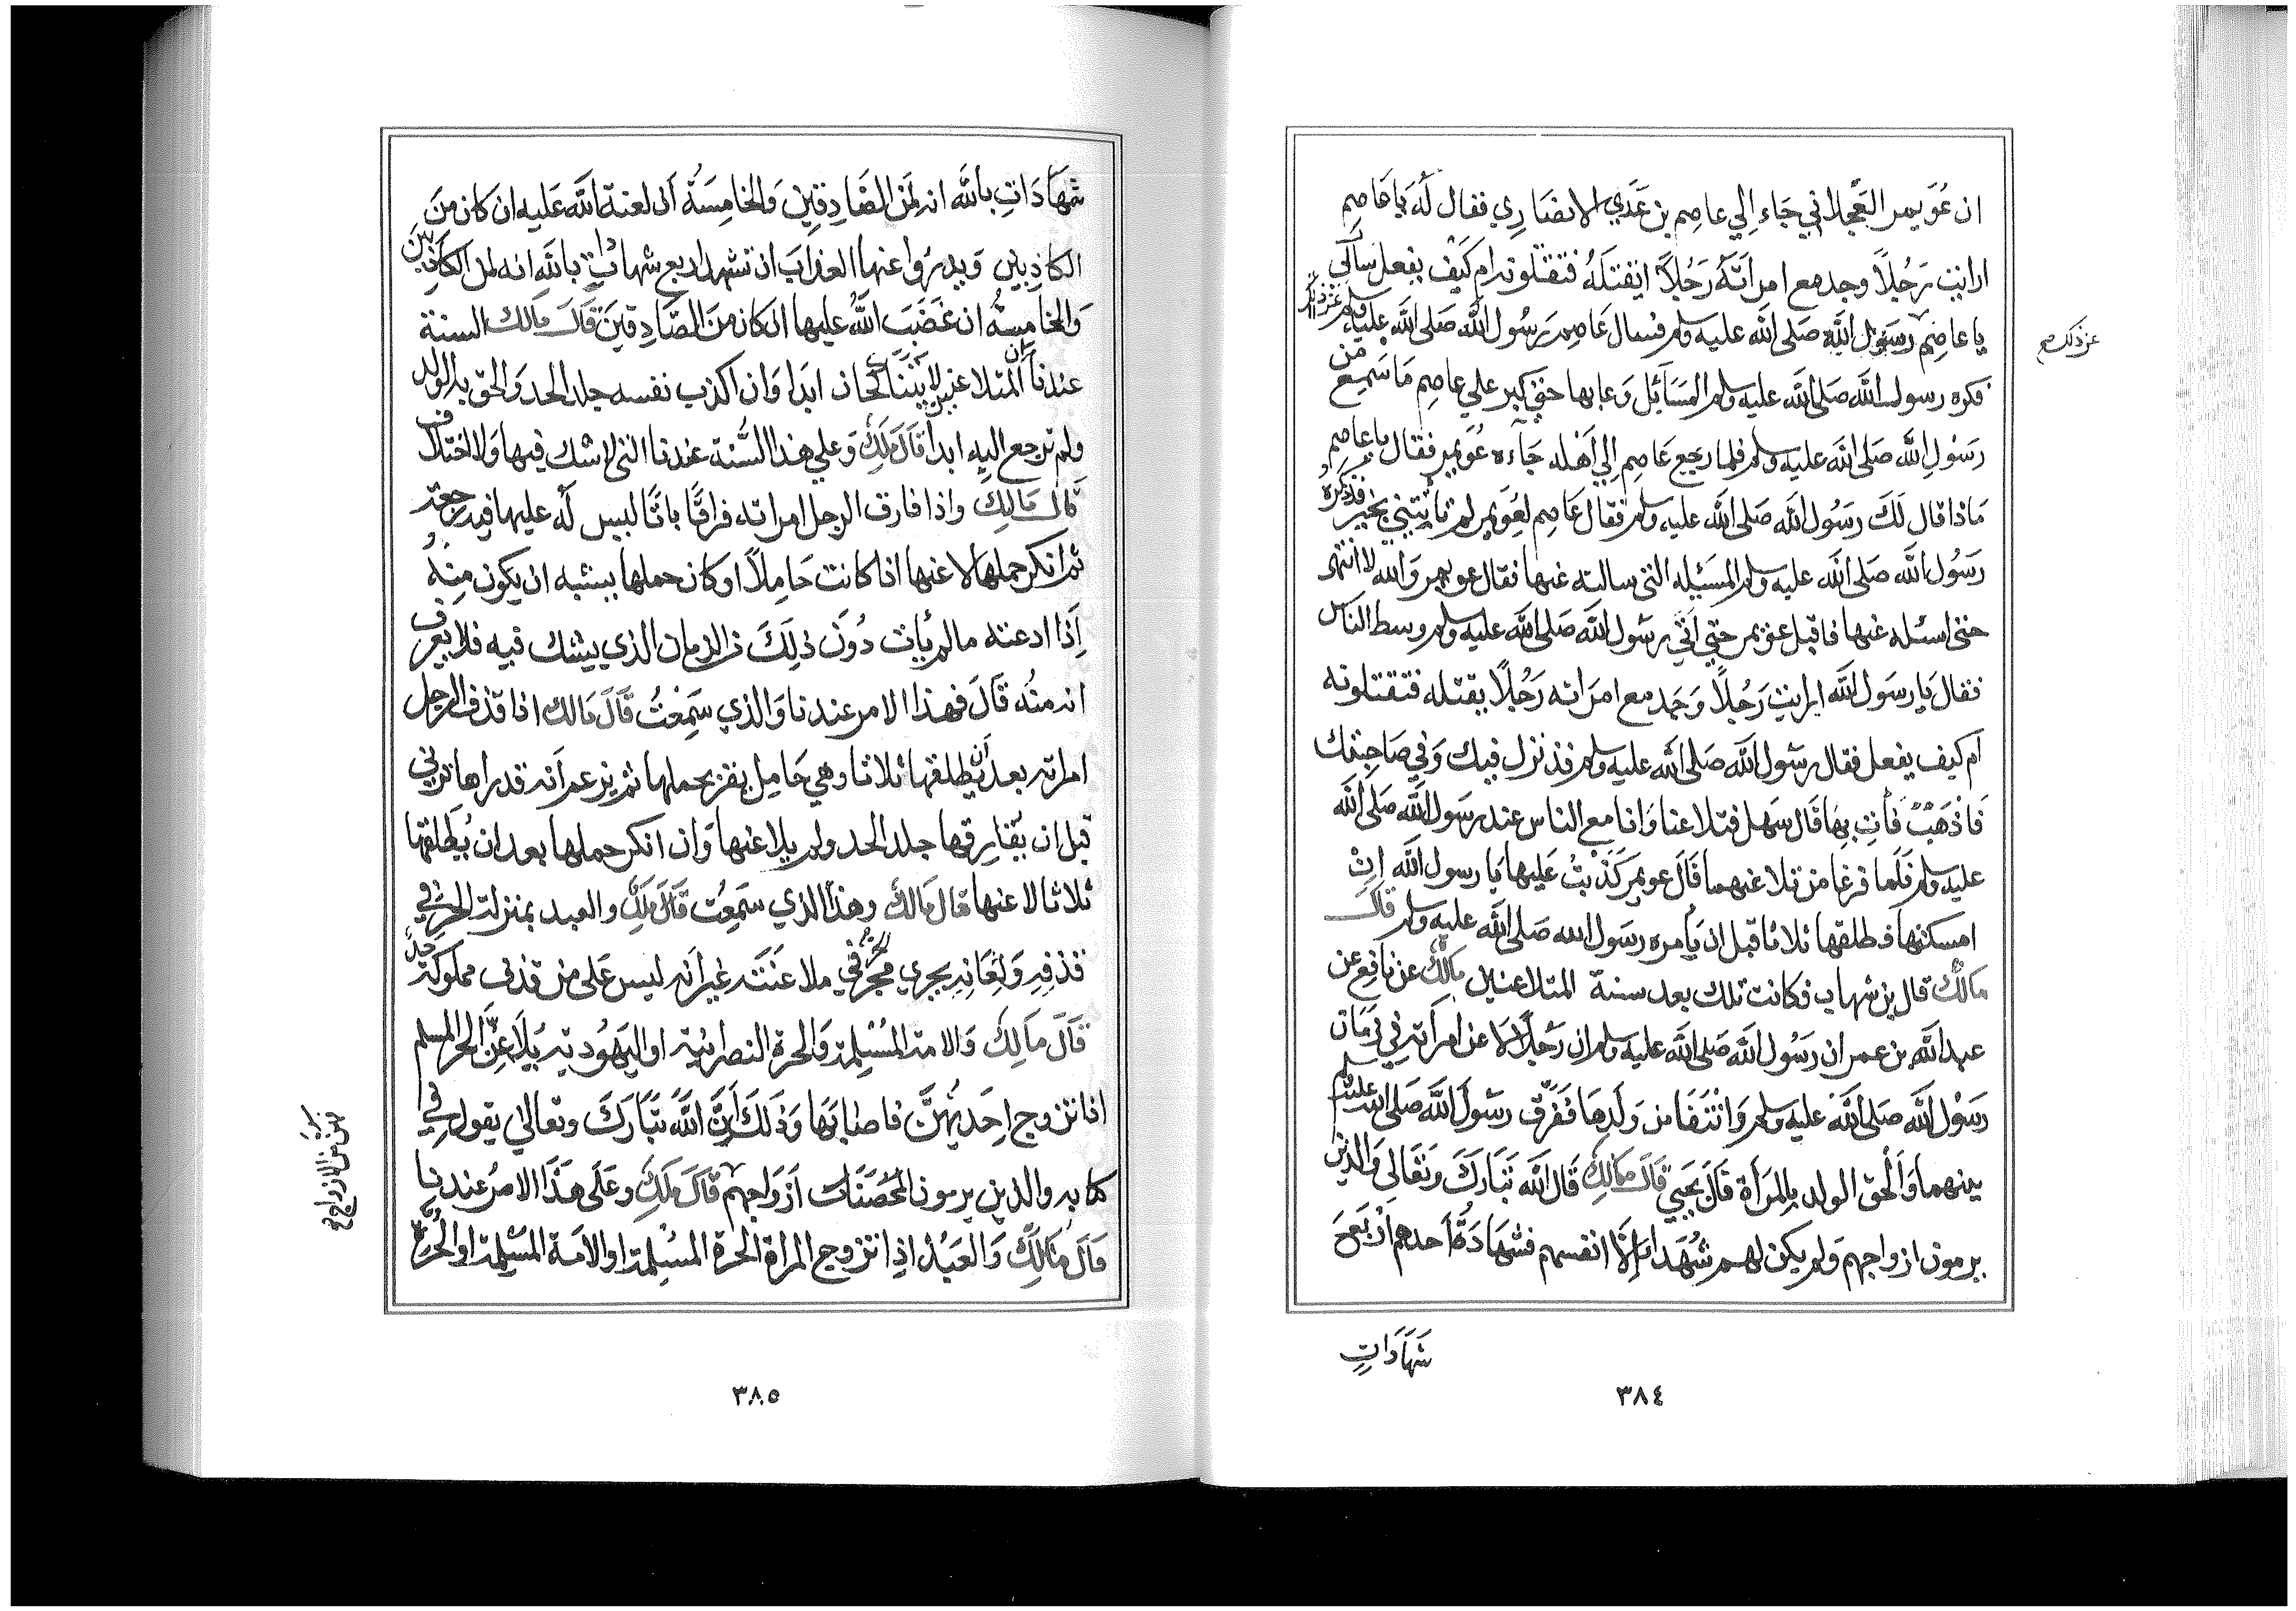 ان عُوَيمر العَجْلاني جَاء اِلي عاصِم بن عَدَي الانصَارِي فقال لَهُ يَا عَاصِم
ارايت رَجُلاً وجد مع امراتهُ رَجُلاً ايقتلهُ فتقتلونه ام كَيْف يفعل سَاَل لي
يا عَاصِم رسَول اللهِ صَلى الله عليه وسلم فسال عَاصِم رَسُول الله صَلى الله عليه وسلم عن ذلك
عن ذلك صح
فكره رسول الله صَلى الله عليه وسلم المسَآئِل وَعابها حتي كبر علي عاصِم مَا سَمِع من
رَسُولِ الله صَلى الله عليه وسلم فلما رجع عَاصِم اِلي اَهْله جَآءه عُوَيمِر فقال يا عاصِم
مَاذا قال لَكَ رسُول الله صَلى الله عليه وسلم فقال عَاصِم لعُوَيمِر لم تأتني بخير قد كره
رَسُول الله صَلى الله عليه وسلم المسَئله التي سالته عنها فقال عويمر وَالله لا انتهى
حتى اسئله عَنها فاقبل عويمر حتي اَتي رسُول الله صَلى الله عليه وسلم وسط النَاس
فقال يَا رسَول الله ارايت رَجُلاً وَجد مع امرَاته رَجُلاً يقتله فتقتلونه
ام كيف يفعل فقال رسُول الله صَلى الله عليه وسلم قد نزل فيك وَفي صَاحِبتك
فَاذهَبْ فأت بِهَا قَال سَهل فتلاعنا وَانا مع الناس عند رسَول الله صَلى الله
عليه وسلم فَلَما فرغا من تلاعنهما قَالَ عويمر كَذَبتُ عَليها يَا رسول الله اِن
امسكتها فطلقها ثلاثا قبل ان يَأمره رسَول الله صَلى الله عليه وسلم قَالَ
مالك قال بن شهاب فكانت تلك بعد سنة المتلاعنين مالك عن نافع عن
عبد الله بن عمر ان رسُول الله صَلى الله عليه وسلم ان رَجُلاً لاعن امرَاته في زَمَان
رَسُول الله صَلى الله عليه وسلم وَانتفَا من وَلدِهَا فَفَرّق رسُول الله صَلى الله عليه وسلم
بينهما وَاَلْحق الولد بِالمرَأة قَالَ يَحيي قَالَ مَالِك قَالَ الله تَبَارَكَ وَتَعَالي وَالذين
يرمون ازواجهم وَلم يكن لهم شُهَدَاء اِلَّا انفسهم فشَهَادَةُ اَحدهم اَرْبَعَ
شَهَادَاتٍ
٣٨٤
شهَادَاتٍ بالله انه لمن الصَادِقين وَالخامِسَةُ ان لعنة الله عَليه ان كان مِنَ
الكاذِبين وَيدرؤا عنها العذابَ ان تشهد اربع شهاداتٍ بالله انه لمن الكاذبين
وَالخامِسَةُ ان غَضَبَ اللهُ عليها ان كان مِنَ الصَادِقين قَالَ مَالك السنة
عندنا ان المتلاعنين لا يتناكحان ابدا وَان اكذب نفسه جلد الحد وَالحق به الولد
ولم ترجع اليه ابدا قَالَ مَلِك وَعلي هذا السُّنة عندنا التي لا شك فيها وَلا اختلاف
قَالَ مَالِك واذا فارق الرجل امراته فراقًا باتًا ليس لَهُ عليها فيه رجعة
ثم انكر حملها لاعنها اذا كانت حَاملاً وكان حملها يشبه ان يكون مِنهُ
اِذا ادعته مالم يأت دُونَ ذلِكَ من الزمان الذي يشك فيه فلا يعرف
انه منُه قَالَ فهذا الامر عندنا وَالذي سَمِعْتُ قَالَ مَالك اذا قذف الرجل
امراته بعد اَن يطلقها ثلاثا وهي حَامِل يقر بحملها ثم يزعم اَنه قد راها تزني
قبل ان يُفَارِقها جلد الحد ولم يلاعنها وَان انكر حملها بعد ان يُطَلقها
ثلاثا لاعنها قال مَالك وهذا الذي سَمِعْت قَالَ مَلِك والعبد بمنزلة الحر في
قذفه وَلِعَانه يجري مجرَي الحر في ملاعَنَته غير اَنه ليس عَلى من قذف مملوكته حد
قَالَ مَالِك وَالامة المُسْلِمة وَالحرة النصرانية او اليَهُودية تُلَاعِنُ الحر المسلم
اذا تزوج اِحَديهُنَّ فاصابَهَا وَذَلِكَ اَنَّ اللهَ تَبَارَكَ وتعالي يقول في
كتابه والذين يرمون المحُصَنات اَزوَاجهم قَالَ مَلِك وعَلَى هَذا الامرُ عندنا
لهن من الازواج صح
قَالَ مَالِك وَالعَبُد اِذا تزوج المراة الحرة المسُلمة او الاَمة المسُلِمة او الحُرة
٣٨٥